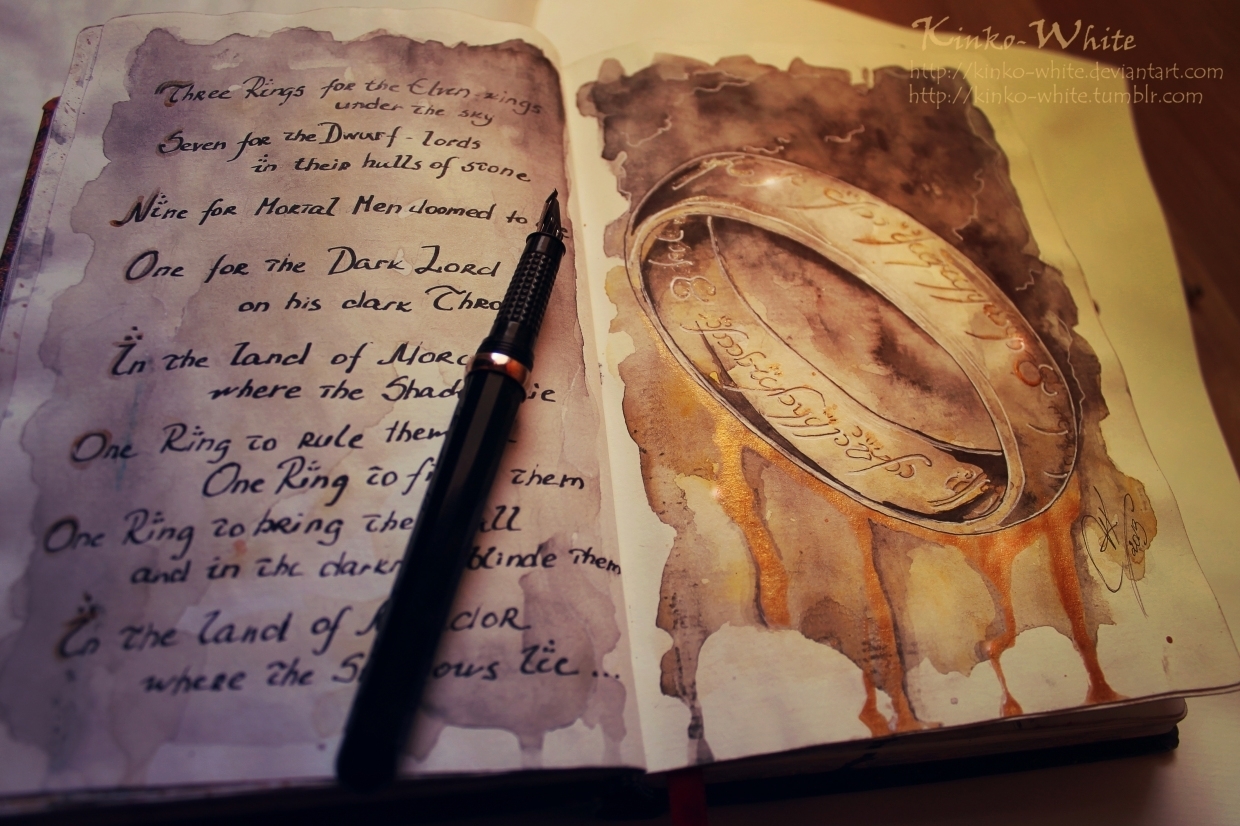 Three Rings for the Elven kings
under the sky
Seven for the Dwarf-lords
in their hulls of stone
Nine for Mortal Men doomed to
One for the Dark Lord
on his dark Thro
In the land of Mord
where the Shad ie
One Ring to rule them
One Ring to fi them
One Ring to bring the ll
and in the darkn blinde them
In the land of M dor
where the S ows lie ...
Kinko-White
http://kinko-white.deviantart.com
http://kinko-white.tumblr.com